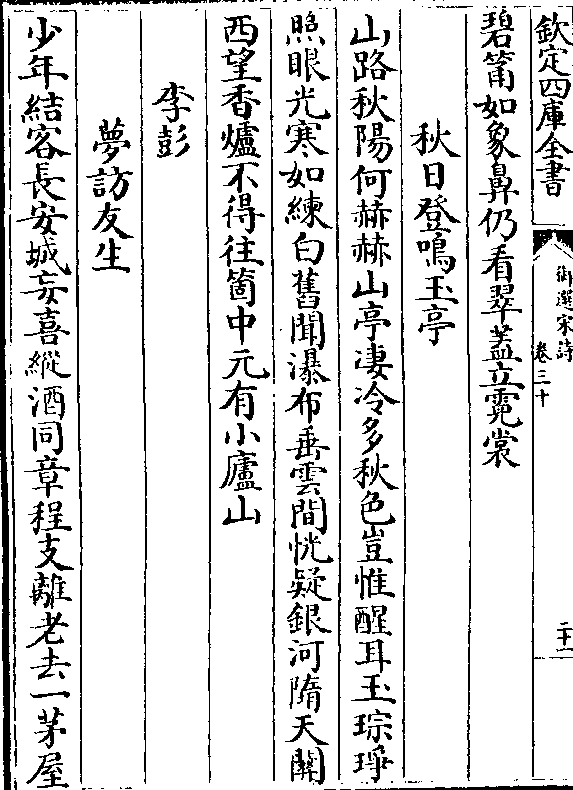 欽定四庫全書
御選宋詩
卷三十
二十一
碧筩如象鼻仍看翠蓋立霓裳
秋日登鳴玉亭
山路秋陽何赫赫山亭凄冷多秋色豈惟醒耳玉琮琤
照眼光寒如練白舊聞瀑布垂雲間恍疑銀河隋天關
西望香爐不得往箇中元有小廬山
李彭
夢訪友生
少年結客長安城妄喜縱酒同章程支離老去一茅屋